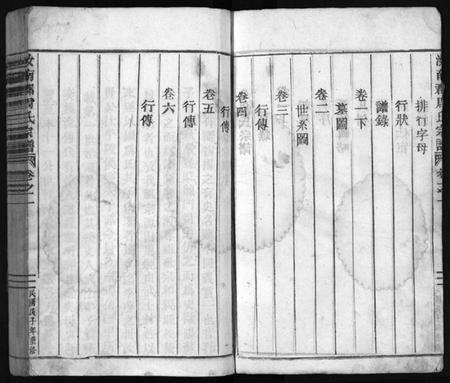 汝南郡周氏宗譜
卷之一
排行字母
行狀
譜錄
卷一下
墓圖
卷二
世系圖
卷三
行傳
卷四
行傳
卷五
行傳
卷六
行傳
汝南郡周氏宗譜
卷之一
民國戊子年重修